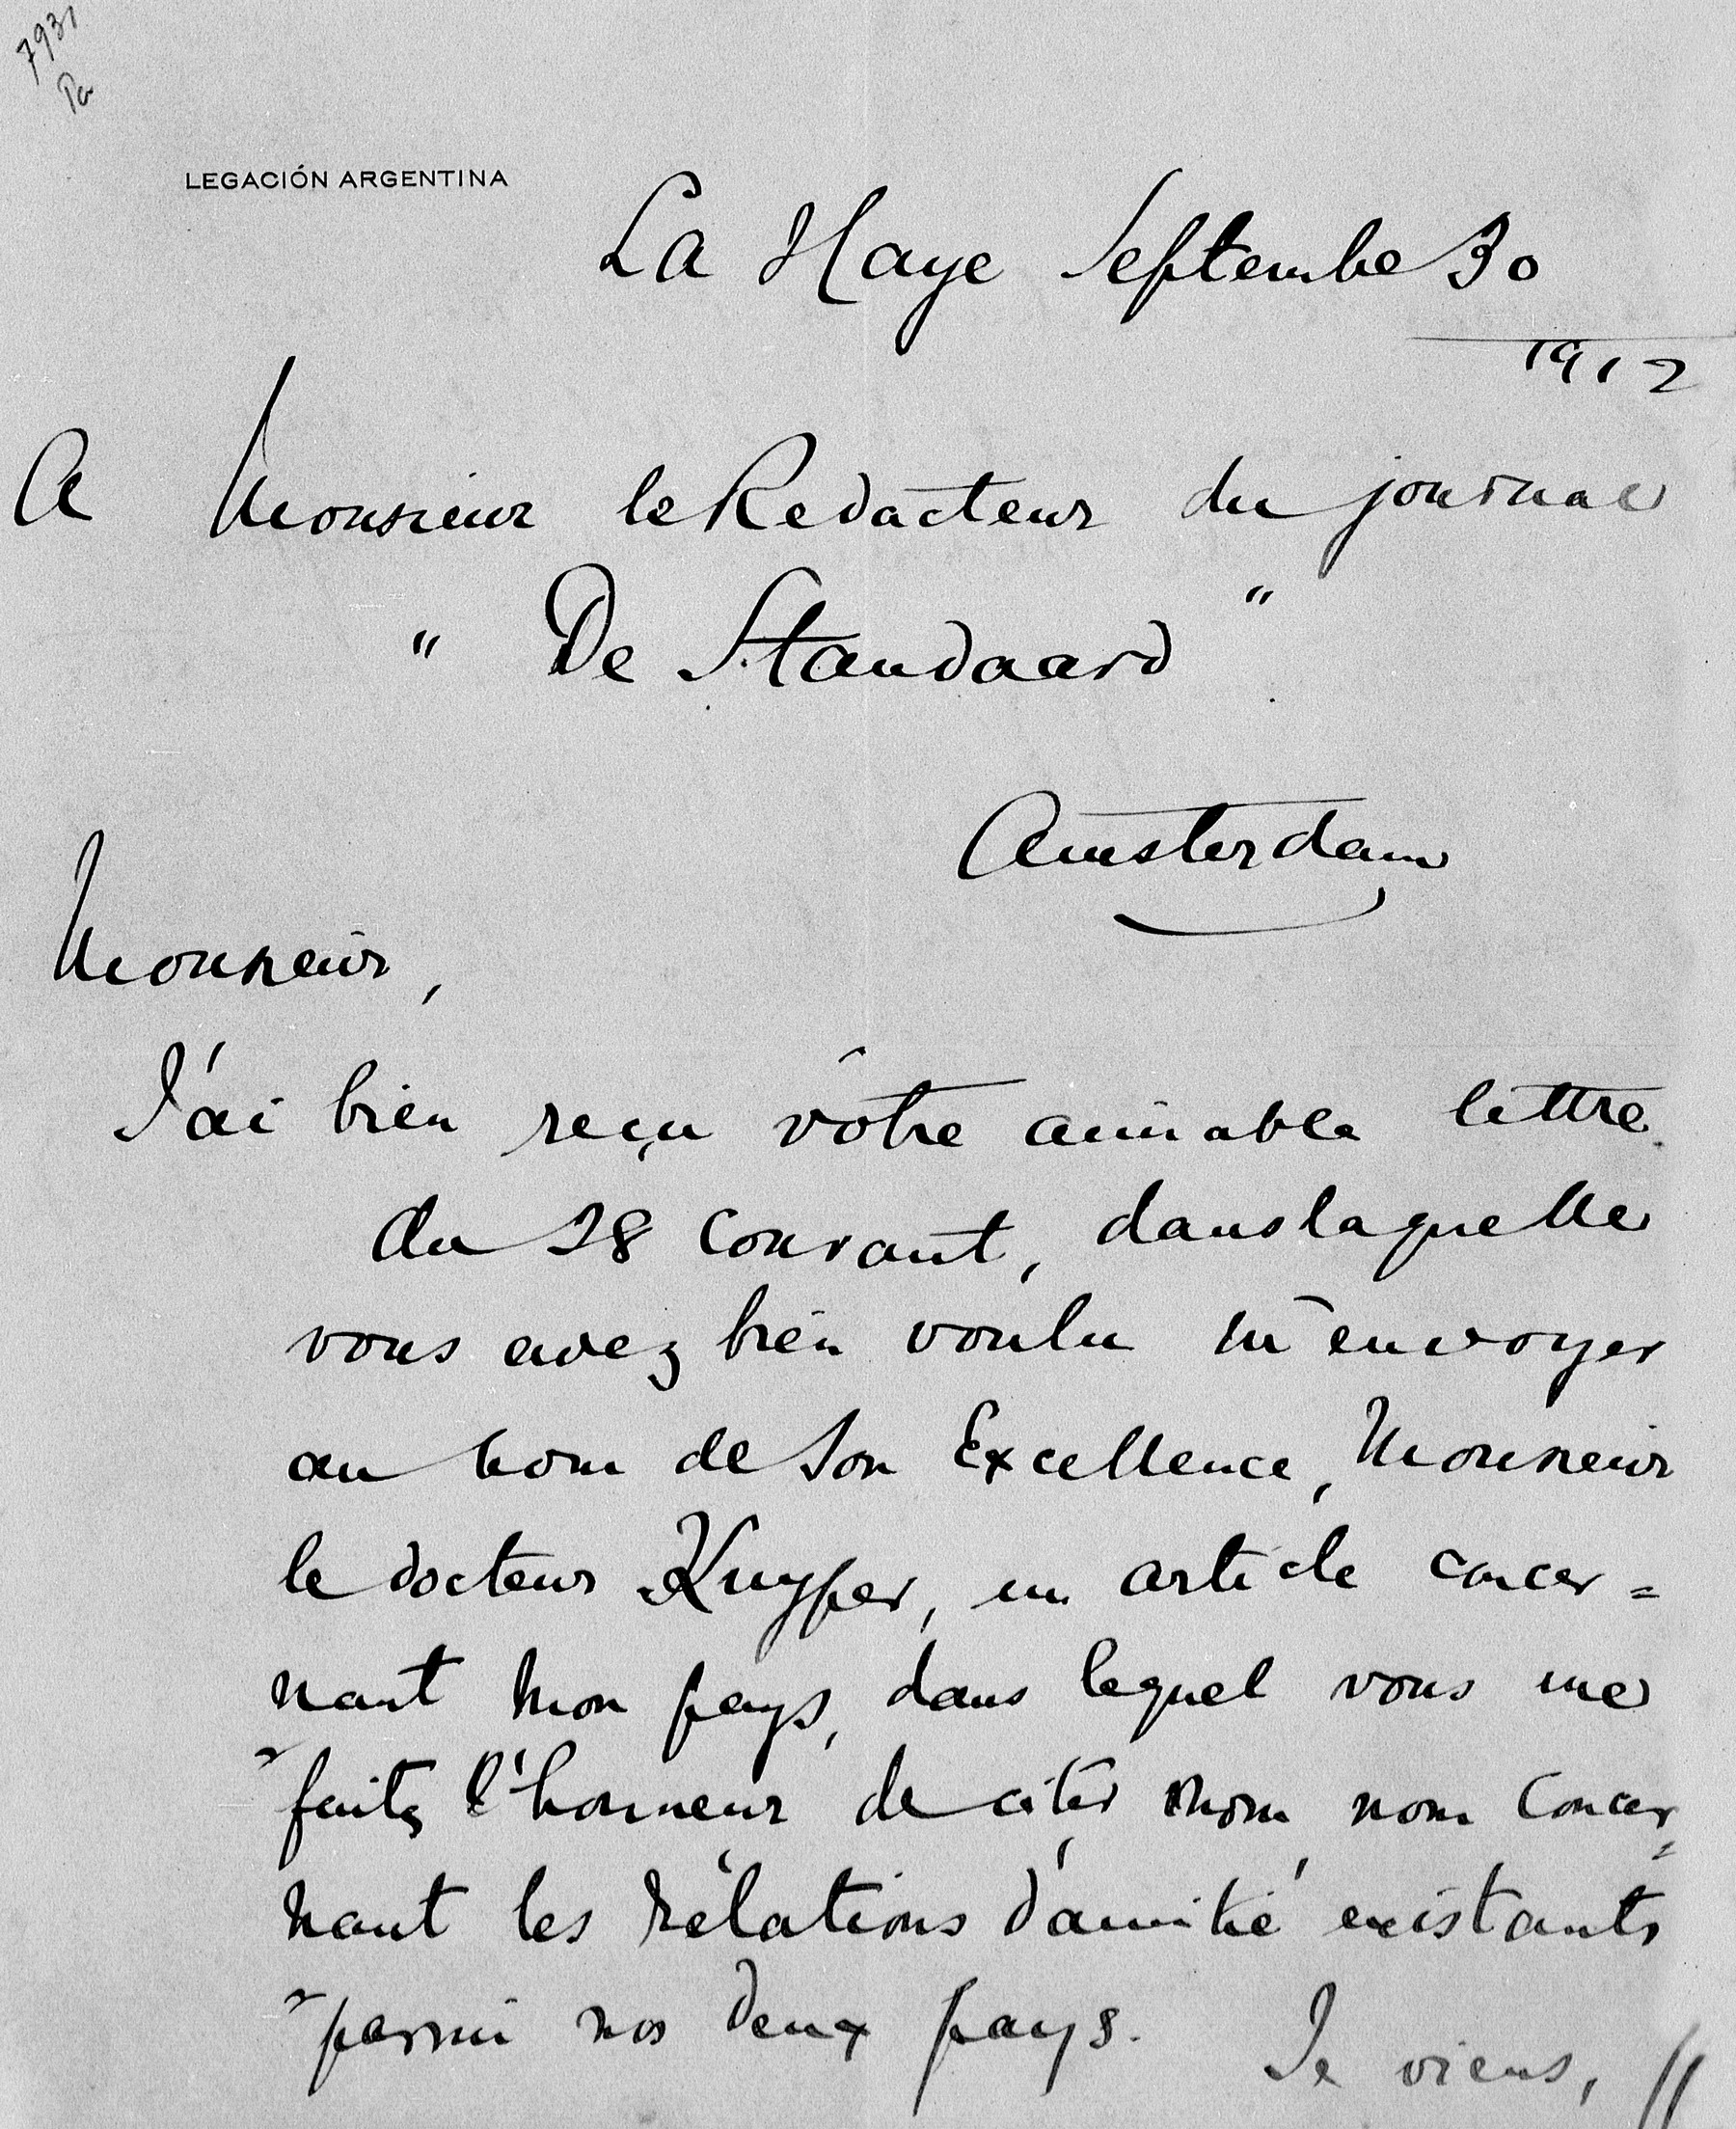 7931
Pa
LEGACIÓN ARGENTINA
La Haye Septembe 30
1912
A Monsieur le Redacteur du journal
" De Standaard "
Amsterdam
Monsieur,
J'ai bien reçu vôtre aimable lettre
du 28 courant, dans laquelle
vous avez bien voulu m'envoyer
au nom de Son Excellence, Monsieur
le docteur Kuyper, un article concer=
nant mon pays, dans lequel vous me
faitz l'honneur de citer mom nom concer=
nant les rélations d'amitié existants
parmi nos deux pays. Je viens, //